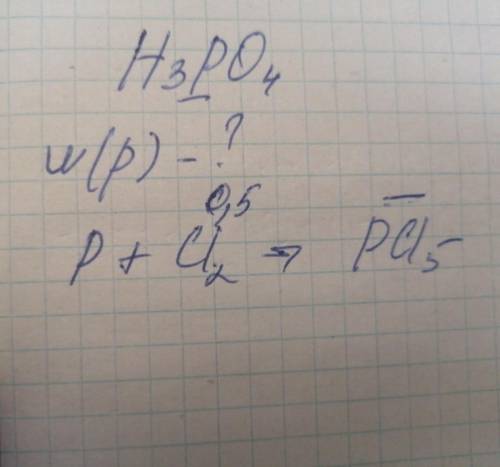 H₃PO₄
w(p) - ?
0,5
P + Cl₂ → PCl₅